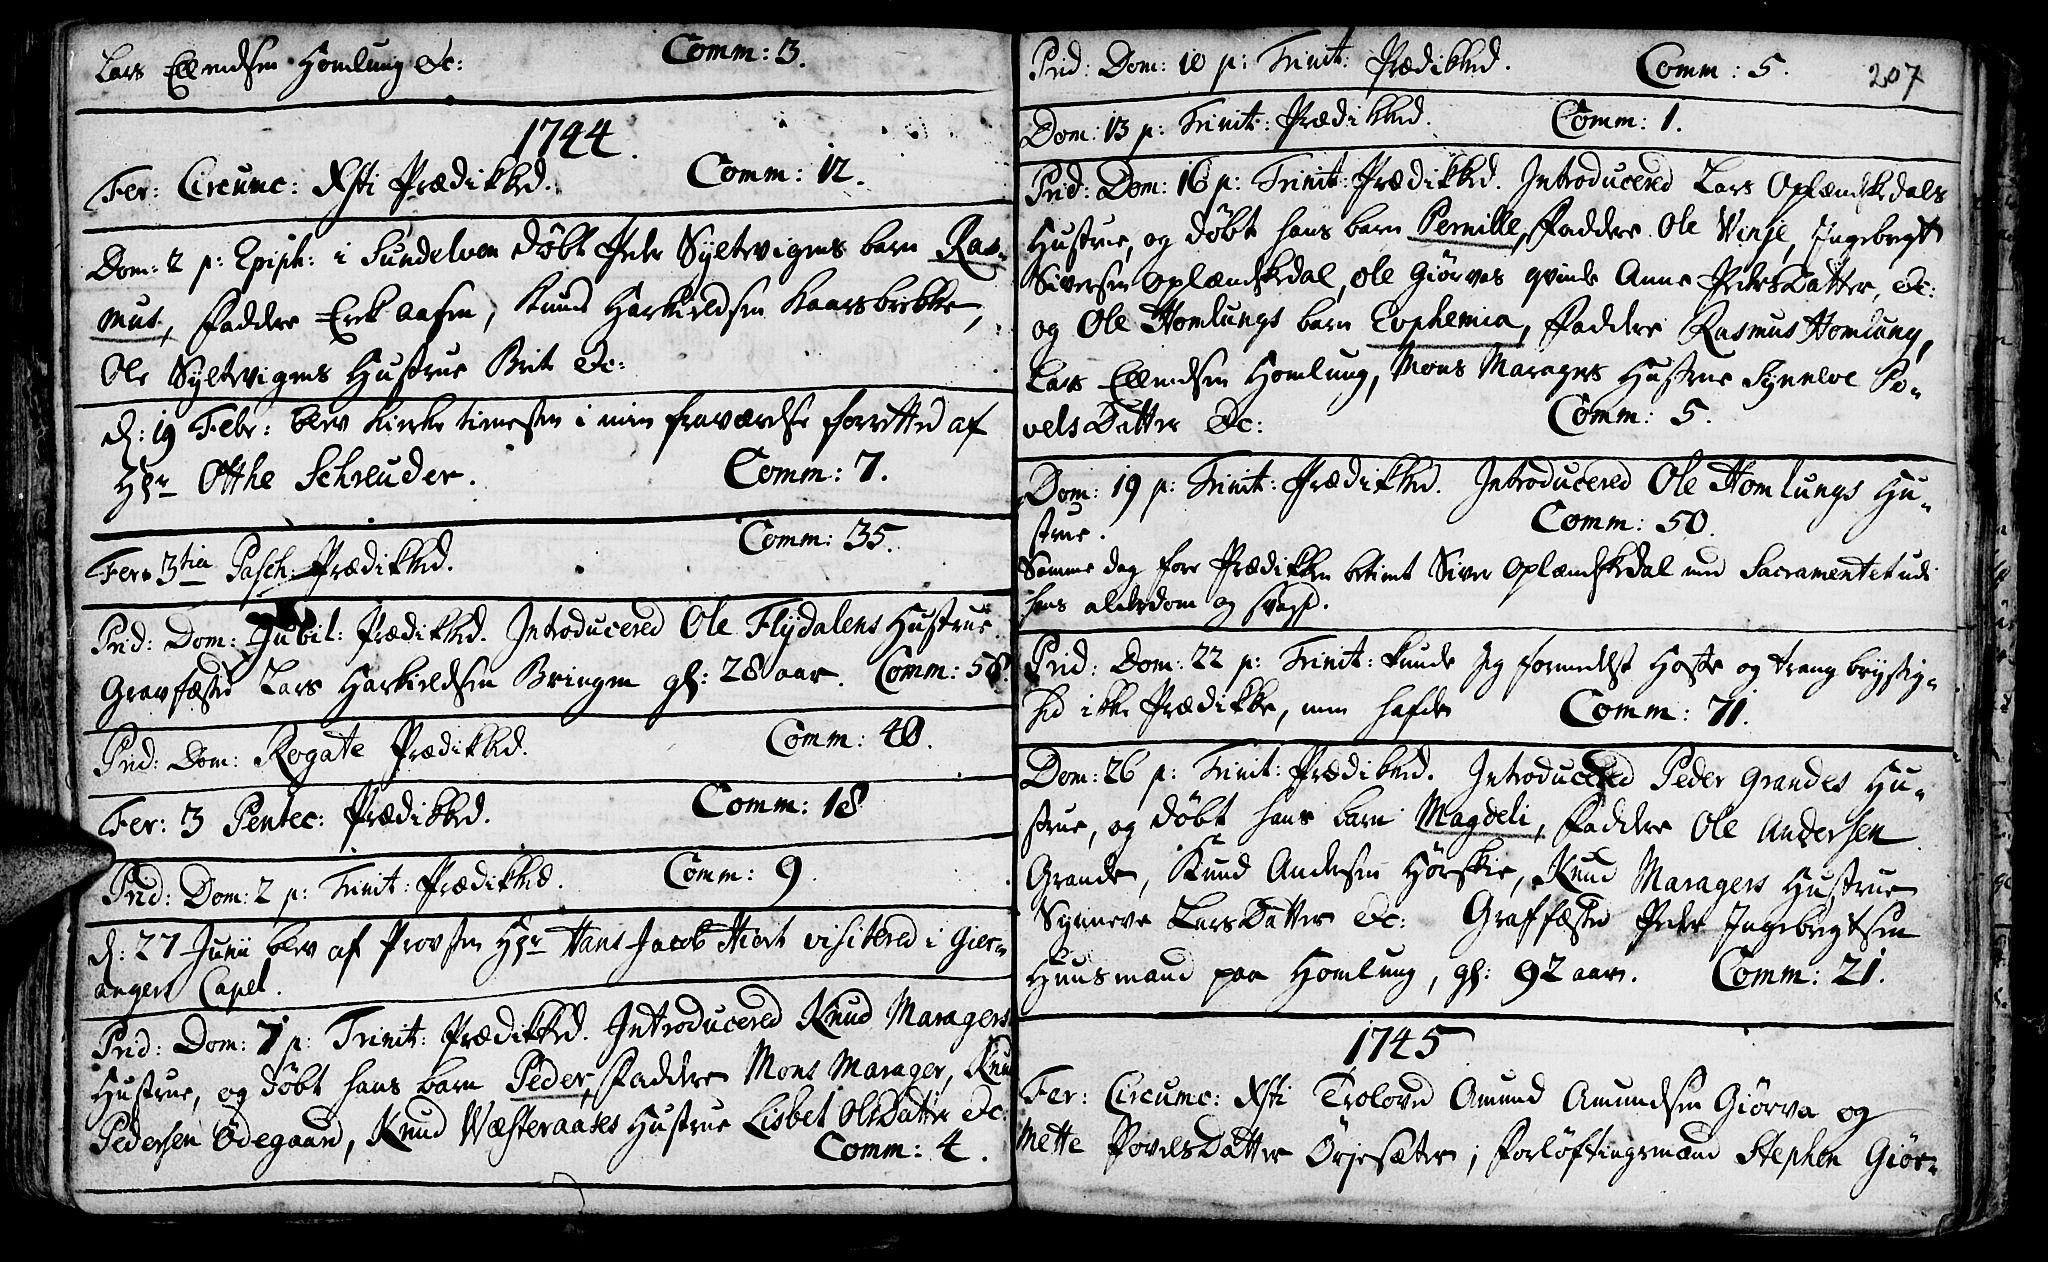 Lars Ellendsen Homlung &c: Comm: 3.
1744.
Fer: Circumc: Xsti Prædikked. Comm: 12.
Dom: 2 p: Epiph: i Sundelven døbt Peder Syltevigens barn Ras-
mus, Faddere Erik Aasen, Knud Harkieldsen Kaarsbrekke,
Ole Syltevigens Hustrue Brit &c:
d: 19 Febr: blev Kirke tienesten i min fraværelse forrettet af
Hr Otthe Schreuder. Comm: 7.
Fer: 3tia Pasch: Prædikked. Comm: 35.
Prid: Dom: Jubil: Prædikked. Introducered Ole Flydalens Hustrue.
Gravfæsted Lars Harkieldsen Bringen gl: 28 aar. Comm: 58.
Prid: Dom: Rogate Prædikked. Comm: 40.
Fer: 3 Pentec: Prædikked. Comm: 18
Prid: Dom: 2 p: Trinit: Prædikked. Comm: 9.
d: 27 Junii blev af Provsten Hr Hans Jacob Hiort visitered i Gier-
angers Capel.
Prid: Dom: 7 p: Trinit: Prædikked. Introducered Knud Maragers
Hustrue, og døbt hans barn Peder, Faddere Mons Marager, Knud
Pedersen Ødegaard, Knud Wæsteraases Hustrue Lisbet OlsDatter &c:
Comm: 4.
207
Prid: Dom: 10 p: Trinit: Prædikked. Comm: 5.
Dom: 13 p: Trinit: Prædikked. Comm: 1.
Prid: Dom: 16 p: Trinit: Prædikked. Introducered Lars Oplændskedals
Hustrue, og døbt hans barn Pernille, Faddere Ole Winje, Ingebregt
Siversen Oplændskedal, Ole Giørvas qvinde Anne PedersDatter, &c:
og Ole Homlungs barn Euphemia, Faddere Rasmus Homlung,
Lars Ellendsen Homlung, Mons Maragers Hustrue Synneve Po-
velsDatter &c: Comm: 5.
Dom: 19 p: Trinit: Prædikked. Introducered Ole Homlungs Hu-
strue. Comm: 50.
Samme dag fore Prædikken betient Siver Oplændskedal med Sacramentet udi
hans alderdom og svaghed.
Prid: Dom: 22 p: Trinit: kunde jeg formedelst Hoste og trang brystig-
hed ikke Prædikke, men hafde Comm: 71.
Dom: 26 p: Trinit: Prædikked. Introducered Peder Grandes Hu-
strue, og døbt hans barn Magdeli, Faddere Ole Andersen
Grande, Knud Andersen Hørskie, Knud Maragers Hustrue
Synneve LarsDatter &c: Graffæsted Peder Ingebregtsen
Huusmand paa Homlung, gl: 92 aar. Comm: 21.
1745
Fer: Circumc: Xsti Troloved Amund Amundsen Giørva og
Mette PovelsDatter Ørjesæter, Forløftingsmænd Stephen Giør-